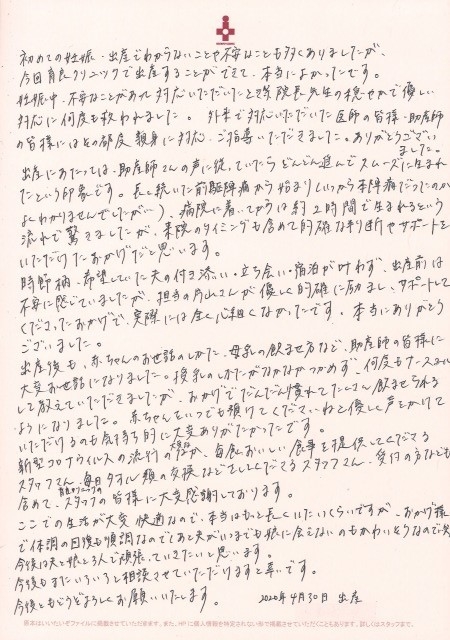 初めての妊娠・出産でわからないことや不安なことも多くありましたが、
今回育良クリニックで出産することができて、本当によかったです。
妊娠中、不安なことがあった時対応いただいたとき院長先生の穏やかで優しい
対応に何度も救われました。外来で対応いただいた医師の皆様・助産師
の皆様にはその都度親身に対応、ご指導いただきました。ありがとうござい
ました。
出産にあたっては、助産師さんの声に従っていたらどんどん進んでスムーズに生まれ
たという印象です。長く続いた前駆陣痛から始まり(いつから本陣痛だったのか
よくわかりませんでしたが…)、病院に着いてからは約2時間で生まれるという
流れで驚きましたが、来院のタイミングも含めて的確な判断やサポートを
いただけたおかげだと思います。
時節柄、希望していた夫の付き添い・立ち会い・宿泊が叶わず、出産前は
不安に感じていましたが、担当の片山さんが優しく的確に励まし、サポートして
くださったおかげで、実際には全く心細くなかったです。本当にありがとう
ございました。
出産後も、赤ちゃんのお世話のしかた、母乳の飲ませ方など、助産師の皆様に
大変お世話になりました。授乳のしかたがなかなかつかめず、何度もナースコール
して教えていただきましたが、おかげでだんだん慣れてたくさん飲ませられる
ようになりました。赤ちゃんをいつでも預けてくださいねと優しく声をかけて
いただけるのも気持ち的に大変ありがたかったです。
新型コロナウイルスの流行の大変な中、毎食おいしい食事を提供してくださる
スタッフさん、毎日タオル類の交換などをしてくださるスタッフさん、受付の方なども
含めて、育良クリニックのスタッフの皆様に大変感謝しております。
ここでの生活が大変快適なので、本当はもっと長くいたいくらいですが、おかげ様
で体調の回復も順調なのであと夫がいまでも娘に会えないのもかわいそうなので笑
今後は夫と娘と3人で頑張っていきたいと思います。
今後もまたいろいろと相談させていただけますと幸いです。
今後ともどうぞよろしくお願いいたします。 2020年4月30日 出産
原本はいいたいぞファイルに掲載させていただきます。また、HPに個人情報を特定されない形で掲載させていただくこともあります。詳しくはスタッフまで。